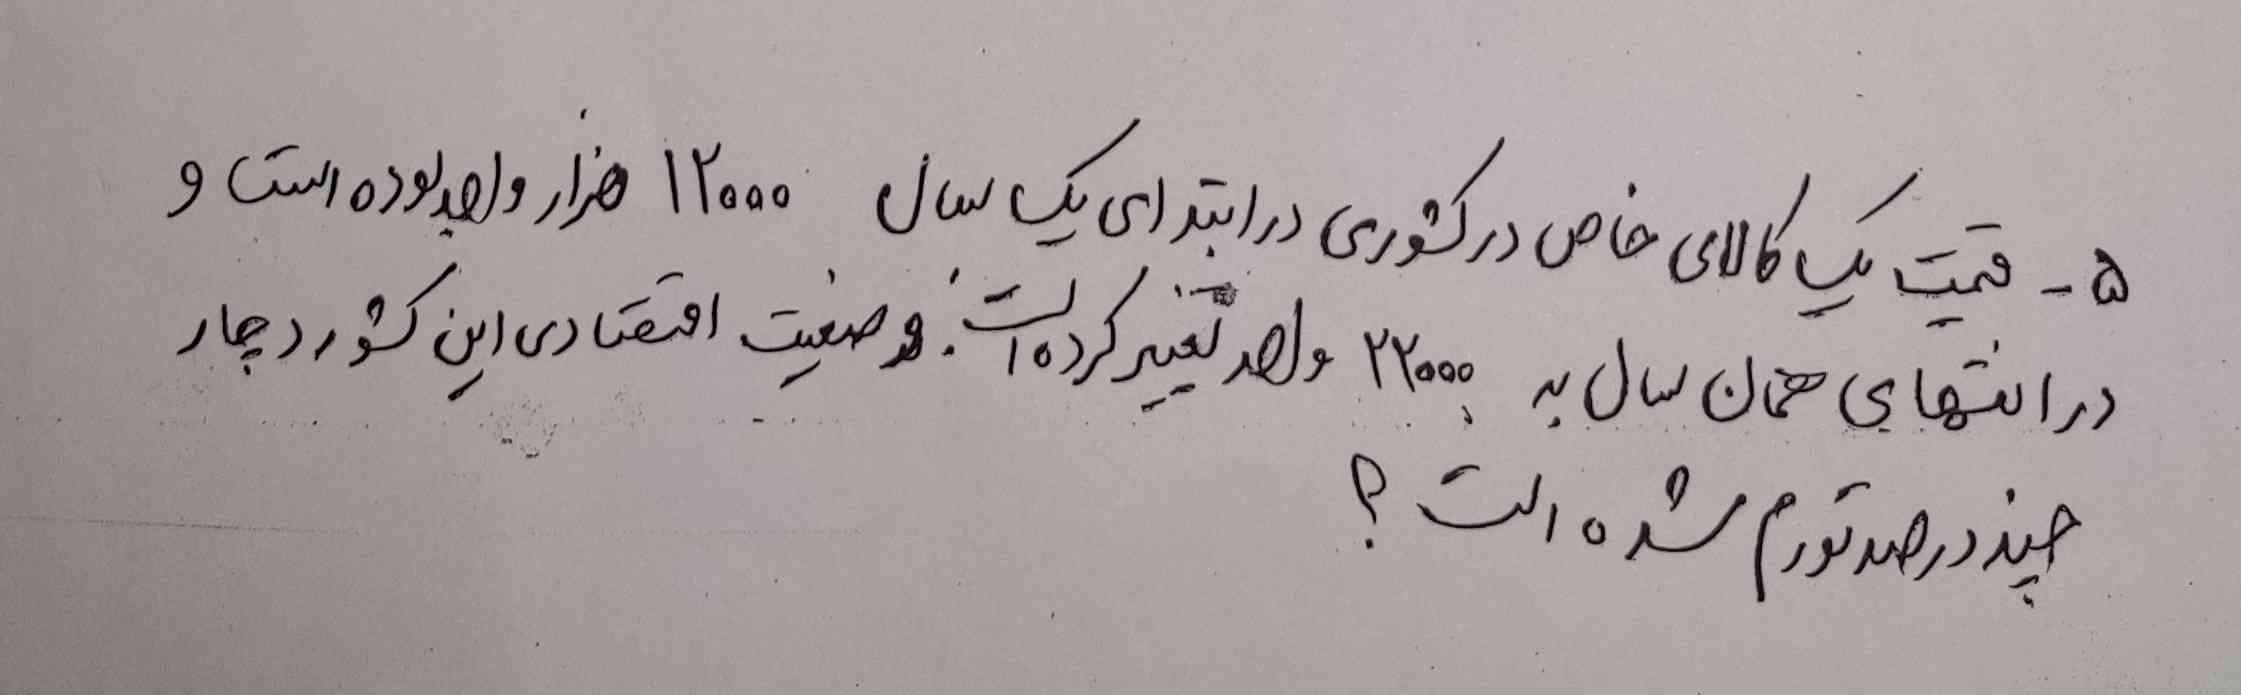 ۵ - قیمت یک کالای خاص در کشوری در ابتدای یک سال ۱۲۰۰۰ هزار واحد بوده است و
در انتهای همان سال به ۲۲۰۰۰ واحد تغییر کرده است. وضعیت اقتصادی این کشور دچار
چند درصد تورم شده است؟